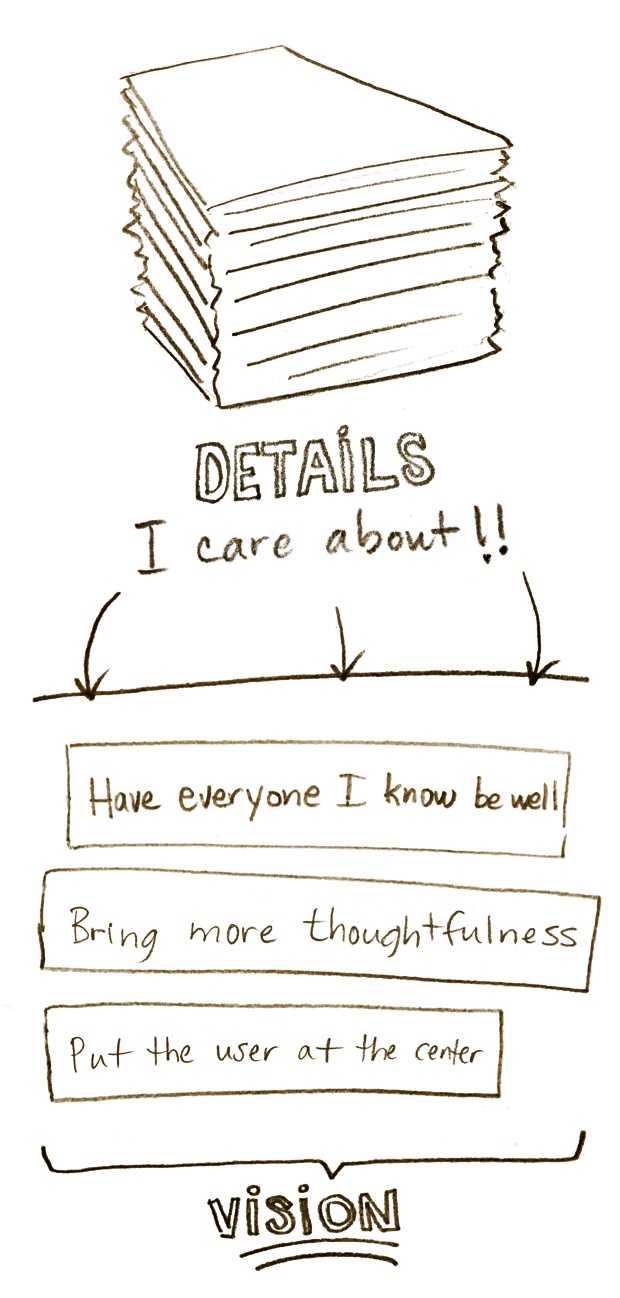 DETAiLS
I care about!!
Have everyone I know be well
Bring more thoughtfulness
Put the user at the center
ViSiON